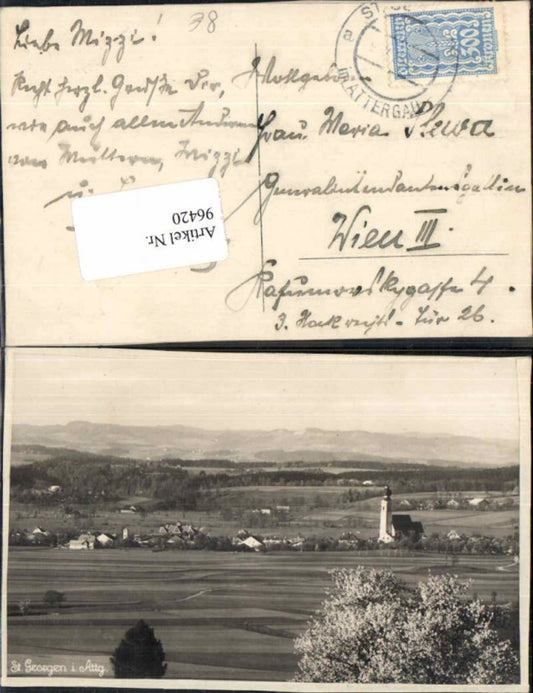 38
Liebe Mizzi!
Recht herzl. Grüße Dir,
wie auch allen Anderen
von Muttern, Mizzi
u.
Artikel Nr.
96420
ST. GE
IM ATTERGAU
a
500
Frau Maria
Generalintendantensgattin
Wien III.
Rasumovskygasse 4.
3. Stock rechts - Tür 26.
St. Georgen i. Attg